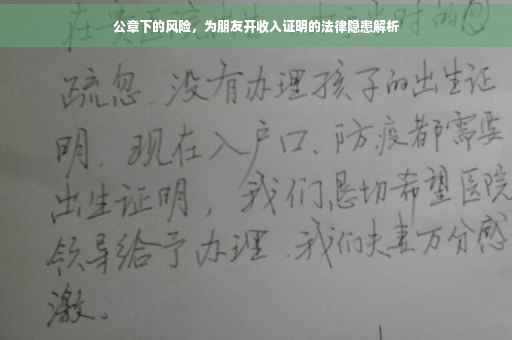 公章下的风险，为朋友开收入证明的法律隐患解析
疏忽、没有办理孩子的出生证
明、现在入户口、防疫都需要
出生证明，我们恳切希望医院
领导给予办理、我们夫妻万分感
激。